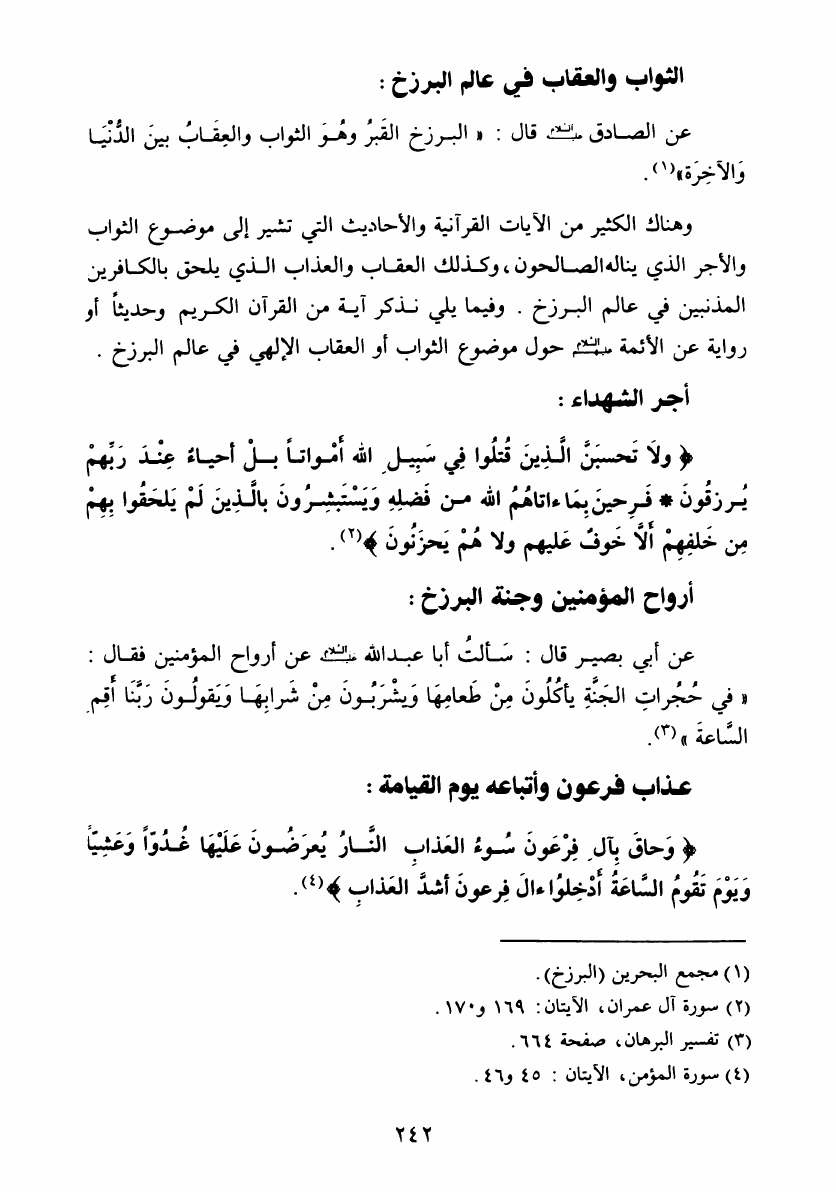 الثواب والعقاب في عالم البرزخ :
عن الصادق عليه السلام قال : « البرزخ القَبرُ وهُوَ الثواب والعِقَابُ بينَ الدُّنْيَا
وَالآخِرَة»(١).
وهناك الكثير من الآيات القرآنية والأحاديث التي تشير إلى موضوع الثواب
والأجر الذي يناله الصالحون، وكذلك العقاب والعذاب الذي يلحق بالكافرين
المذنبين في عالم البرزخ . وفيما يلي نذكر آية من القرآن الكريم وحديثاً أو
رواية عن الأئمة عليهم السلام حول موضوع الثواب أو العقاب الإلهي في عالم البرزخ .
أجر الشهداء :
﴿ ولاَ تَحسبَنَّ الَّذِينَ قُتلُوا فِي سَبِيلِ الله أَمْواتاً بلْ أحياءُ عِنْدَ رَبِّهمْ
يُرزقُونَ * فَرِحينَ بِمَا ءاتاهُمُ الله من فَضلِهِ وَيَسْتَبشِرُونَ بالَّذِينَ لَمْ يَلحَقُوا بِهِمْ
مِن خَلفِهِمْ ألَّا خَوفٌ عَليهم ولا هُمْ يَحزَنُونَ ﴾(٢).
أرواح المؤمنين وجنة البرزخ :
عن أبي بصير قال : سَألتُ أبا عبدالله عليه السلام عن أرواح المؤمنين فقال :
« في حُجُراتِ الجَنَّةِ يأكُلُونَ مِنْ طَعامِهَا وَيشْرَبُونَ مِنْ شَرابِهَا وَيَقولُونَ رَبَّنَا أَقِمِ
السَّاعةَ »(٣).
عذاب فرعون وأتباعه يوم القيامة :
﴿ وَحاقَ بِآلِ فِرْعَونَ سُوءُ العَذابِ النَّارُ يُعرَضُونَ عَلَيْهَا غُدُوّاً وَعَشِيّاً
وَيَوْمَ تَقُومُ السَّاعَةُ أَدْخِلوُا ءالَ فِرعونَ أشدَّ العَذابِ ﴾(٤).
(١) مجمع البحرين (البرزخ).
(٢) سورة آل عمران، الآيتان: ١٦٩ و١٧٠.
(٣) تفسير البرهان، صفحة ٦٦٤.
(٤) سورة المؤمن، الآيتان : ٤٥ و٤٦.
٢٤٢